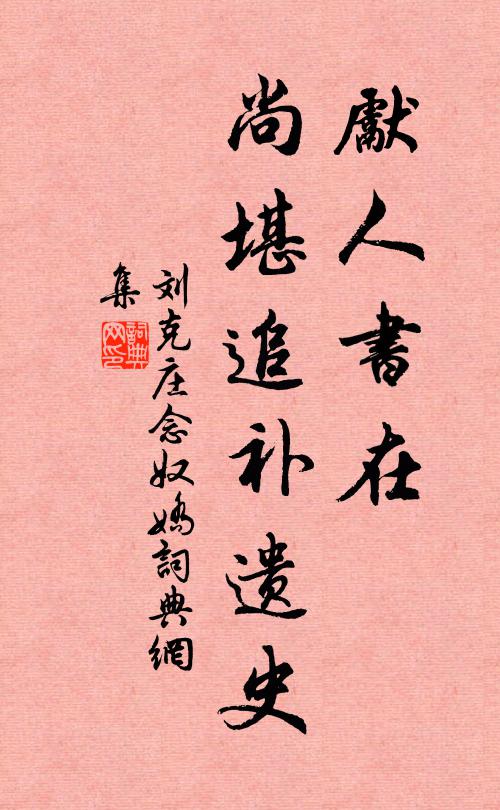 獻人書在
尚堪追补遗史
刘克庄念奴嬌詞典網
集
詞典
网印